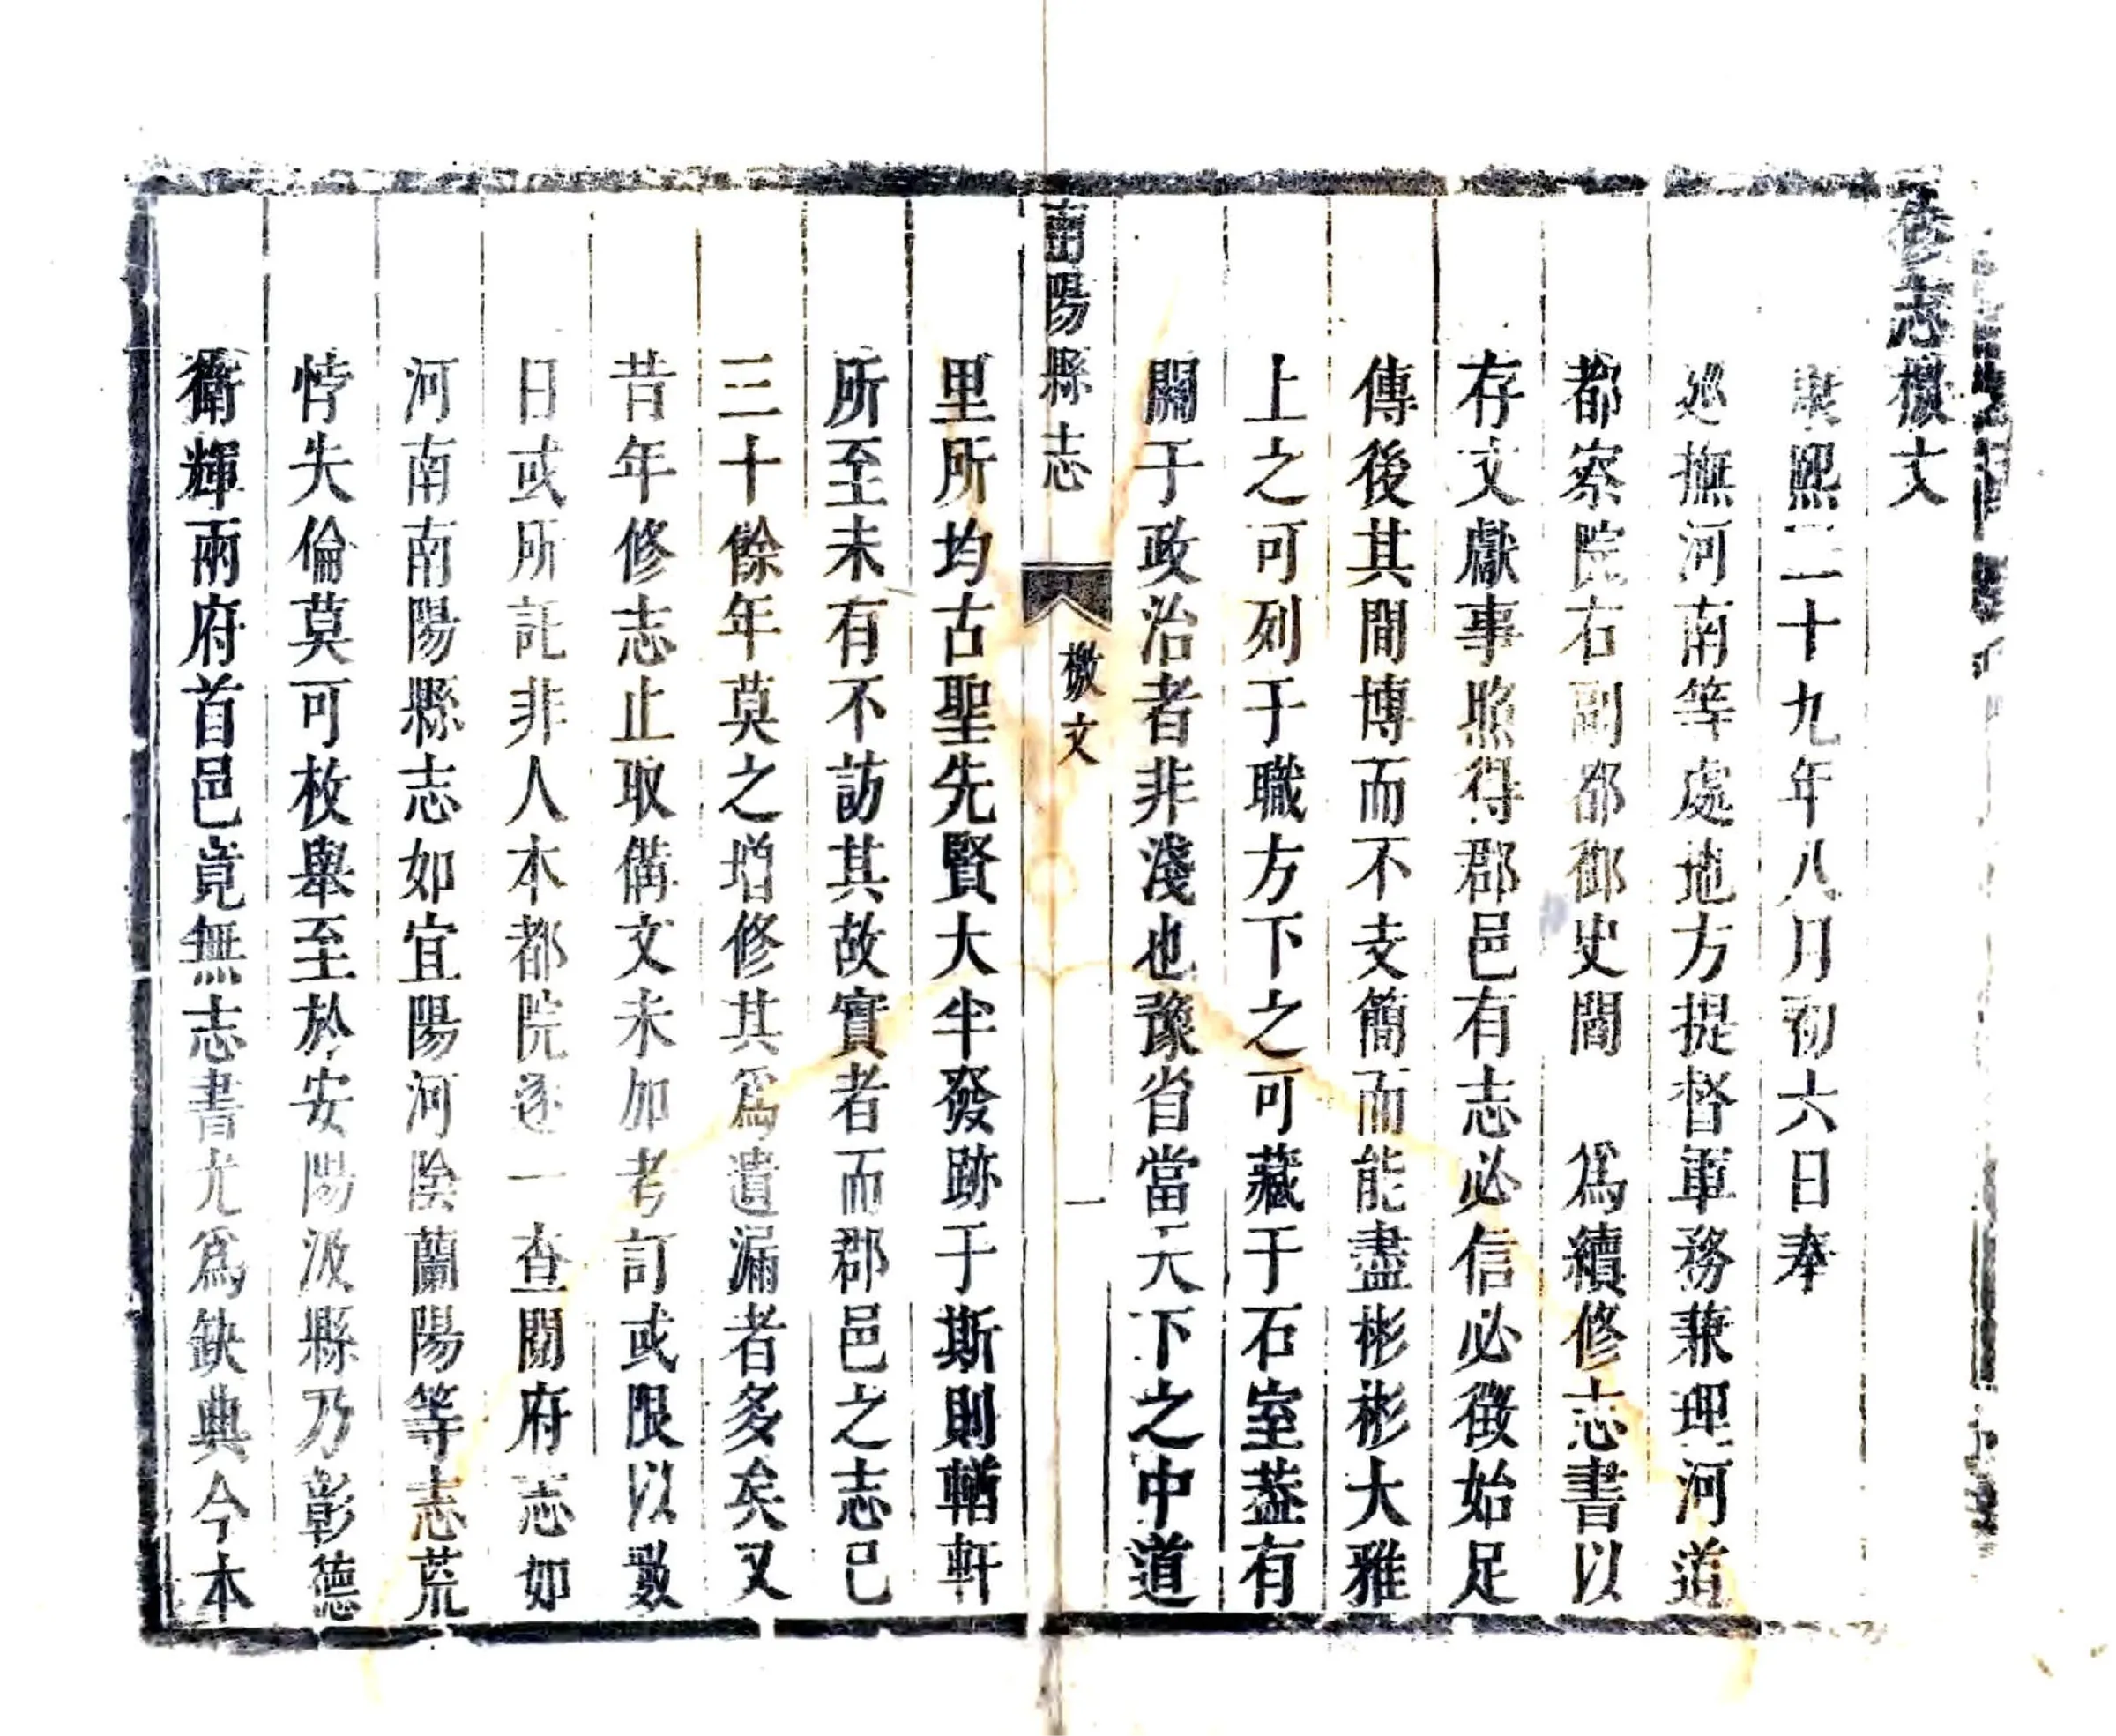 修志檄文
康熙二十九年八月初六日奉
廵撫河南等處地方提督軍務兼理河道
都察院右副都御史閻 爲續修志書以
存文獻事照得郡邑有志必信必徵始足
傳後其間博而不支簡而能盡彬彬大雅
上之可列于職方下之可藏于石室葢有
關于政治者非淺也豫省當天下之中道
南陽縣志 檄文 一
里所均古聖先賢大半發跡于斯則輶軒
所至未有不訪其故實者而郡邑之志已
三十餘年莫之增修其爲遺漏者多矣又
昔年修志止取備文未加考訂或限以數
日或所託非人本都院逐一查閱府志如
河南南陽縣志如宜陽河陰蘭陽等志荒
悖失倫莫可枚舉至於安陽汲縣乃彰德
衛輝兩府首邑竟無志書尤爲缺典今本